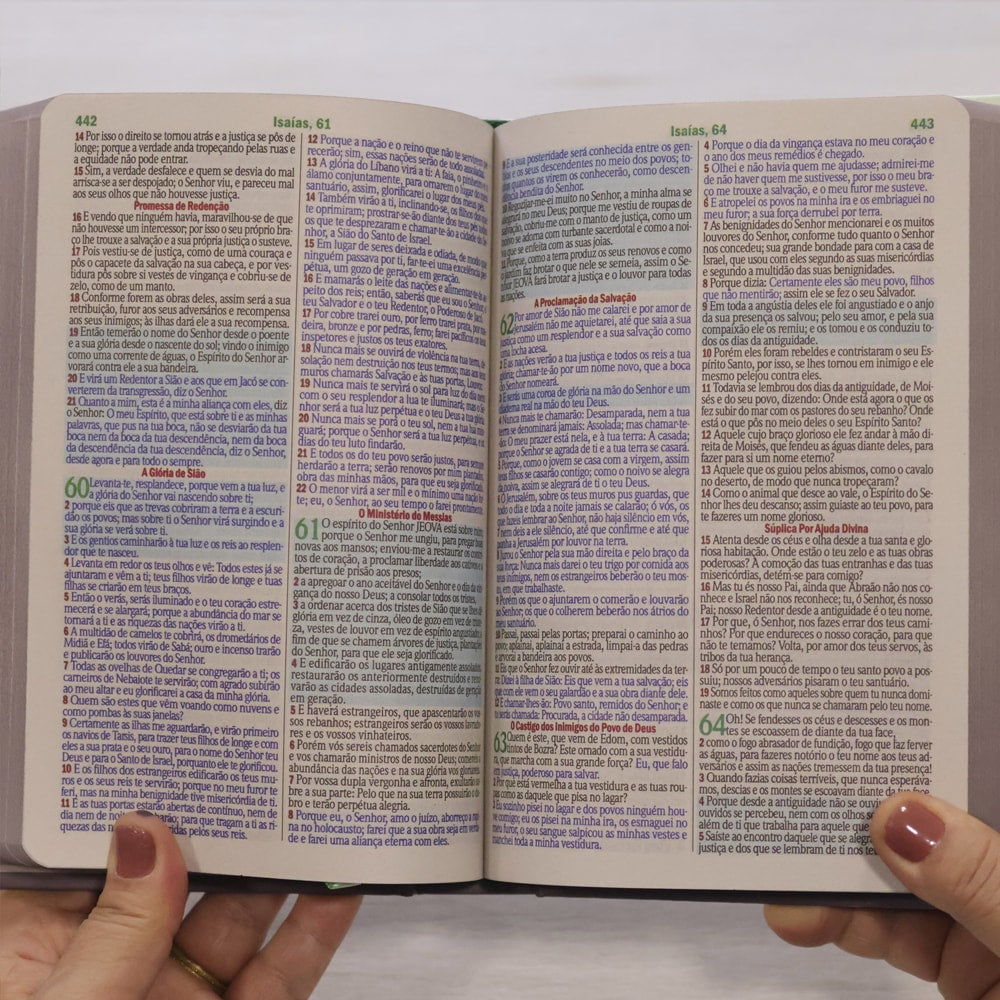 442
Isaías, 61
14 Por isso o direito se tornou atrás e a justiça se pôs de
longe; porque a verdade anda tropeçando pelas ruas e
a equidade não pode entrar.
15 Sim, a verdade desfalece e quem se desvia do mal
arrisca-se a ser despojado; o Senhor viu, e pareceu mal
aos seus olhos que não houvesse justiça.
Promessa de Redenção
16 E vendo que ninguém havia, maravilhou-se de que
não houvesse um intercessor; por isso o seu próprio bra-
ço lhe trouxe a salvação e a sua própria justiça o susteve.
17 Pois vestiu-se de justiça, como de uma couraça e
pôs o capacete da salvação na sua cabeça, e por ves-
tidura pôs sobre si vestes de vingança e cobriu-se de
zelo, como de um manto.
18 Conforme forem as obras deles, assim será a sua
retribuição, furor aos seus adversários e recompensa
aos seus inimigos; às ilhas dará ele a sua recompensa.
19 Então temerão o nome do Senhor desde o poente
e a sua glória desde o nascente do sol; vindo o inimigo
como uma corrente de águas, o Espírito do Senhor ar-
vorará contra ele a sua bandeira.
20 E virá um Redentor a Sião e aos que em Jacó se con-
verterem da transgressão, diz o Senhor.
21 Quanto a mim, esta é a minha aliança com eles, diz
o Senhor: O meu Espírito, que está sobre ti e as minhas
palavras, que pus na tua boca, não se desviarão da tua
boca nem da boca da tua descendência, nem da boca
da descendência da tua descendência, diz o Senhor,
desde agora e para todo o sempre.
A Glória de Sião
60 Levanta-te, resplandece, porque vem a tua luz, e
a glória do Senhor vai nascendo sobre ti;
2 porque eis que as trevas cobriram a terra e a escuri-
dão os povos; mas sobre ti o Senhor virá surgindo e a
sua glória se verá sobre ti.
3 E os gentios caminharão à tua luz e os reis ao resplen-
dor que te nasceu.
4 Levanta em redor os teus olhos e vê: Todos estes já se
ajuntaram e vêm a ti; teus filhos virão de longe e tuas
filhas se criarão em teus braços.
5 Então o verás, serás iluminado e o teu coração estre-
mecerá e se alargará; porque a abundância do mar se
tornará a ti e as riquezas das nações virão a ti.
6 A multidão de camelos te cobrirá, os dromedários de
Midiã e Efá; todos virão de Sabá; ouro e incenso trarão
e publicarão os louvores do Senhor.
7 Todas as ovelhas de Quedar se congregarão a ti; os
carneiros de Nebaiote te servirão; com agrado subirão
ao meu altar e eu glorificarei a casa da minha glória.
8 Quem são estes que vêm voando como nuvens e
como pombas às suas janelas?
9 Certamente as ilhas me aguardarão, e virão primeiro
os navios de Társis, para trazer teus filhos de longe e com
eles a sua prata e o seu ouro, para o nome do Senhor teu
Deus e para o Santo de Israel, porquanto ele te glorificou.
10 E os filhos dos estrangeiros edificarão os teus mu-
ros e os seus reis te servirão; porque no meu furor te
feri, mas na minha benignidade tive misericórdia de ti.
11 E as tuas portas estarão abertas de contínuo, nem de
dia nem de noite para que tragam a ti as ri-
quezas das pelos seus reis.
12 Porque a nação e o reino que não te servirem
recerão; sim, essas nações serão de todo
13 A glória do Líbano virá a ti: A faia, o
álamo conjuntamente, para ornarem o lugar do
santuário, assim, glorificarei o lugar dos meus
14 Também virão a ti, inclinando-se, os filhos dos que
te oprimiram; prostrar-se-ão diante dos teus pés todos
os que te desprezaram e chamar-te-ão a cidade do Se-
nhor, a Sião do Santo de Israel.
15 Em lugar de seres deixada e odiada, de modo que
ninguém passava por ti, far-te-ei uma excelência per-
pétua, um gozo de geração em geração.
16 E mamarás o leite das nações e alimentar-te-ás ao
peito dos reis; então, saberás que eu sou o Senhor, o
teu Salvador e o teu Redentor, o Poderoso de Jacó.
17 Por cobre trarei ouro, por ferro trarei prata, por ma-
deira, bronze e por pedras, ferro; farei pacíficos os teus
inspetores e justos os teus exatores.
18 Nunca mais se ouvirá de violência na tua terra, de
solação nem destruição nos teus termos; mas aos teus
muros chamarás Salvação e às tuas portas, Louvor.
19 Nunca mais te servirá o sol para luz do dia nem
com o seu resplendor a lua te iluminará; mas o Se-
nhor será a tua luz perpétua e o teu Deus a tua glória.
20 Nunca mais se porá o teu sol, nem a tua lua min-
guará; porque o Senhor será a tua luz perpétua, e os
dias do teu luto findarão.
21 E todos os do teu povo serão justos, para sempre
herdarão a terra; serão renovos por mim plantados,
obra das minhas mãos, para que eu seja glorificado.
22 O menor virá a ser mil e o mínimo uma nação for-
te; eu, o Senhor, ao seu tempo o farei prontamente.
O Ministério do Messias
61 O espírito do Senhor JEOVÁ está sobre mim,
porque o Senhor me ungiu, para pregar boas
novas aos mansos; enviou-me a restaurar os con-
tos de coração, a proclamar liberdade aos cativos e
abertura de prisão aos presos;
2 a apregoar o ano aceitável do Senhor e o dia da vin-
gança do nosso Deus; a consolar todos os tristes,
3 a ordenar acerca dos tristes de Sião que se lhes dê
glória em vez de cinza, óleo de gozo em vez de triste-
za, vestes de louvor em vez de espírito angustiado, a
fim de que se chamem árvores de justiça, plantações
do Senhor, para que ele seja glorificado.
4 E edificarão os lugares antigamente assolados,
restaurarão os anteriormente destruídos e reno-
varão as cidades assoladas, destruídas de geração
em geração.
5 E haverá estrangeiros, que apascentarão os vos-
sos rebanhos; estrangeiros serão os vossos lavrado-
res e os vossos vinhateiros.
6 Porém vós sereis chamados sacerdotes do Senhor
e vos chamarão ministros de nosso Deus; comereis a
abundância das nações e na sua glória vos gloriareis.
7 Por vossa dupla vergonha e afronta, exultarão so-
bre a sua parte: Pelo que na sua terra possuirão o do-
bro e terão perpétua alegria.
8 Porque eu, o Senhor, amo o juízo, aborreço a rapi-
na no holocausto; farei que a sua obra seja em verda-
de e farei uma aliança eterna com eles.
Isaías, 64
443
9 E a sua posteridade será conhecida entre os gen-
tios e os seus descendentes no meio dos povos; to-
dos quantos os virem os conhecerão, como descen-
dência bendita do Senhor.
10 Regozijar-me-ei muito no Senhor, a minha alma se
alegrará no meu Deus; porque me vestiu de roupas de
salvação, cobriu-me com o manto de justiça, como um
noivo se adorna com turbante sacerdotal e como a noi-
va que se enfeita com as suas joias.
11 Porque, como a terra produz os seus renovos e como
o jardim faz brotar o que nele se semeia, assim o Se-
nhor JEOVÁ fará brotar a justiça e o louvor para todas
as nações.
A Proclamação da Salvação
62 Por amor de Sião não me calarei e por amor de
Jerusalém não me aquietarei, até que saia a sua
justiça como um resplendor e a sua salvação como
uma tocha acesa.
2 E as nações verão a tua justiça e todos os reis a tua
glória; chamar-te-ão por um nome novo, que a boca
do Senhor nomeará.
3 E serás uma coroa de glória na mão do Senhor e um
diadema real na mão do teu Deus.
4 Nunca mais te chamarão: Desamparada, nem a tua
terra se denominará jamais: Assolada; mas chamar-te-
ão: O meu prazer está nela, e à tua terra: A casada;
porque o Senhor se agrada de ti e a tua terra se casará.
5 Porque, como o jovem se casa com a virgem, assim
teus filhos se casarão contigo; como o noivo se alegra
da noiva, assim se alegrará de ti o teu Deus.
6 Ó Jerusalém, sobre os teus muros pus guardas, que
todo o dia e toda a noite jamais se calarão; ó vós, os
que fazeis lembrar ao Senhor, não haja silêncio em vós,
7 nem deis a ele silêncio, até que confirme e até que
ponha a Jerusalém por louvor na terra.
8 Jurou o Senhor pela sua mão direita e pelo braço da
sua força: Nunca mais darei o teu trigo por comida aos
teus inimigos, nem os estrangeiros beberão o teu mos-
to, em que trabalhaste.
9 Porém os que o ajuntarem o comerão e louvarão
ao Senhor; os que o colherem beberão nos átrios do
meu santuário.
10 Passai, passai pelas portas; preparai o caminho ao
povo; aplainai, aplainai a estrada, limpai-a das pedras
e arvorai a bandeira aos povos.
11 Eis que o Senhor fez ouvir até às extremidades da ter-
ra: Dizei à filha de Sião: Eis que vem a tua salvação; eis
que com ele vem o seu galardão e a sua obra diante dele.
12 E chamar-lhes-ão: Povo santo, remidos do Senhor; e
tu serás chamada: Procurada, a cidade não desamparada.
O Castigo dos Inimigos do Povo de Deus
63 Quem é este, que vem de Edom, com vestidos
tintos de Bozra? Este ornado com a sua vestidu-
ra, que marcha com a sua grande força? Eu, que falo
em justiça, poderoso para salvar.
2 Por que está vermelha a tua vestidura e as tuas rou-
pas como as daquele que pisa no lagar?
3 Eu sozinho pisei no lagar e dos povos ninguém hou-
ve comigo; eu os pisei na minha ira, os esmaguei no
meu furor, o seu sangue salpicou as minhas vestes e
manchei toda a minha vestidura.
4 Porque o dia da vingança estava no meu coração e
o ano dos meus remédios é chegado.
5 Olhei e não havia quem me ajudasse; admirei-me
de não haver quem me sustivesse, por isso o meu bra-
ço me trouxe a salvação, e o meu furor me susteve.
6 E atropelei os povos na minha ira e os embriaguei no
meu furor; a sua força derrubei por terra.
7 As benignidades do Senhor mencionarei e os muitos
louvores do Senhor, conforme tudo quanto o Senhor
nos concedeu; sua grande bondade para com a casa de
Israel, que usou com eles segundo as suas misericórdias
e segundo a multidão das suas benignidades.
8 Porque dizia: Certamente eles são meu povo, filhos
que não mentirão; assim ele se fez o seu Salvador.
9 Em toda a angústia deles foi ele angustiado e o anjo
da sua presença os salvou; pelo seu amor, e pela sua
compaixão ele os remiu; e os tomou e os conduziu to-
dos os dias da antiguidade.
10 Porém eles foram rebeldes e contristaram o seu Es-
pírito Santo, por isso, se lhes tornou em inimigo e ele
mesmo pelejou contra eles.
11 Todavia se lembrou dos dias da antiguidade, de Moi-
sés e do seu povo, dizendo: Onde está agora o que os
fez subir do mar com os pastores do seu rebanho? Onde
está o que pôs no meio deles o seu Espírito Santo?
12 Aquele cujo braço glorioso ele fez andar à mão di-
reita de Moisés, que fendeu as águas diante deles, para
fazer para si um nome eterno?
13 Aquele que os guiou pelos abismos, como o cavalo
no deserto, de modo que nunca tropeçaram?
14 Como o animal que desce ao vale, o Espírito do Se-
nhor lhes deu descanso; assim guiaste ao teu povo, para
te fazeres um nome glorioso.
Súplica Por Ajuda Divina
15 Atenta desde os céus e olha desde a tua santa e glo-
riosa habitação. Onde estão o teu zelo e as tuas obras
poderosas? A comoção das tuas entranhas e das tuas
misericórdias, detém-se para comigo?
16 Mas tu és nosso Pai, ainda que Abraão não nos co-
nhece e Israel não nos reconhece; tu, ó Senhor, és nosso
Pai; nosso Redentor desde a antiguidade é o teu nome.
17 Por que, ó Senhor, nos fazes errar dos teus cami-
nhos? Por que endureces o nosso coração, para que
não te temamos? Volta, por amor dos teus servos, às
tribos da tua herança.
18 Só por um pouco de tempo o teu santo povo a pos-
suiu; nossos adversários pisaram o teu santuário.
19 Somos feitos como aqueles sobre quem tu nunca domi-
naste e como os que nunca se chamaram pelo teu nome.
64 Oh! Se fendesses os céus e descesses e os mon-
tes se escoassem de diante da tua face,
2 como o fogo abrasador de fundição, fogo que faz ferver
as águas, para fazeres notório o teu nome aos teus ad-
versários e assim as nações tremessem da tua presença!
3 Quando fazias coisas terríveis, que nunca esperáva-
mos, descias e os montes se escoavam diante da tua face.
4 Porque desde a antiguidade não se ouviu
ouvidos se percebeu, nem com os olhos se
além de ti que trabalha para aquele que
5 Saíste ao encontro daquele que se alegra
justiça e dos que se lembram de ti nos teus